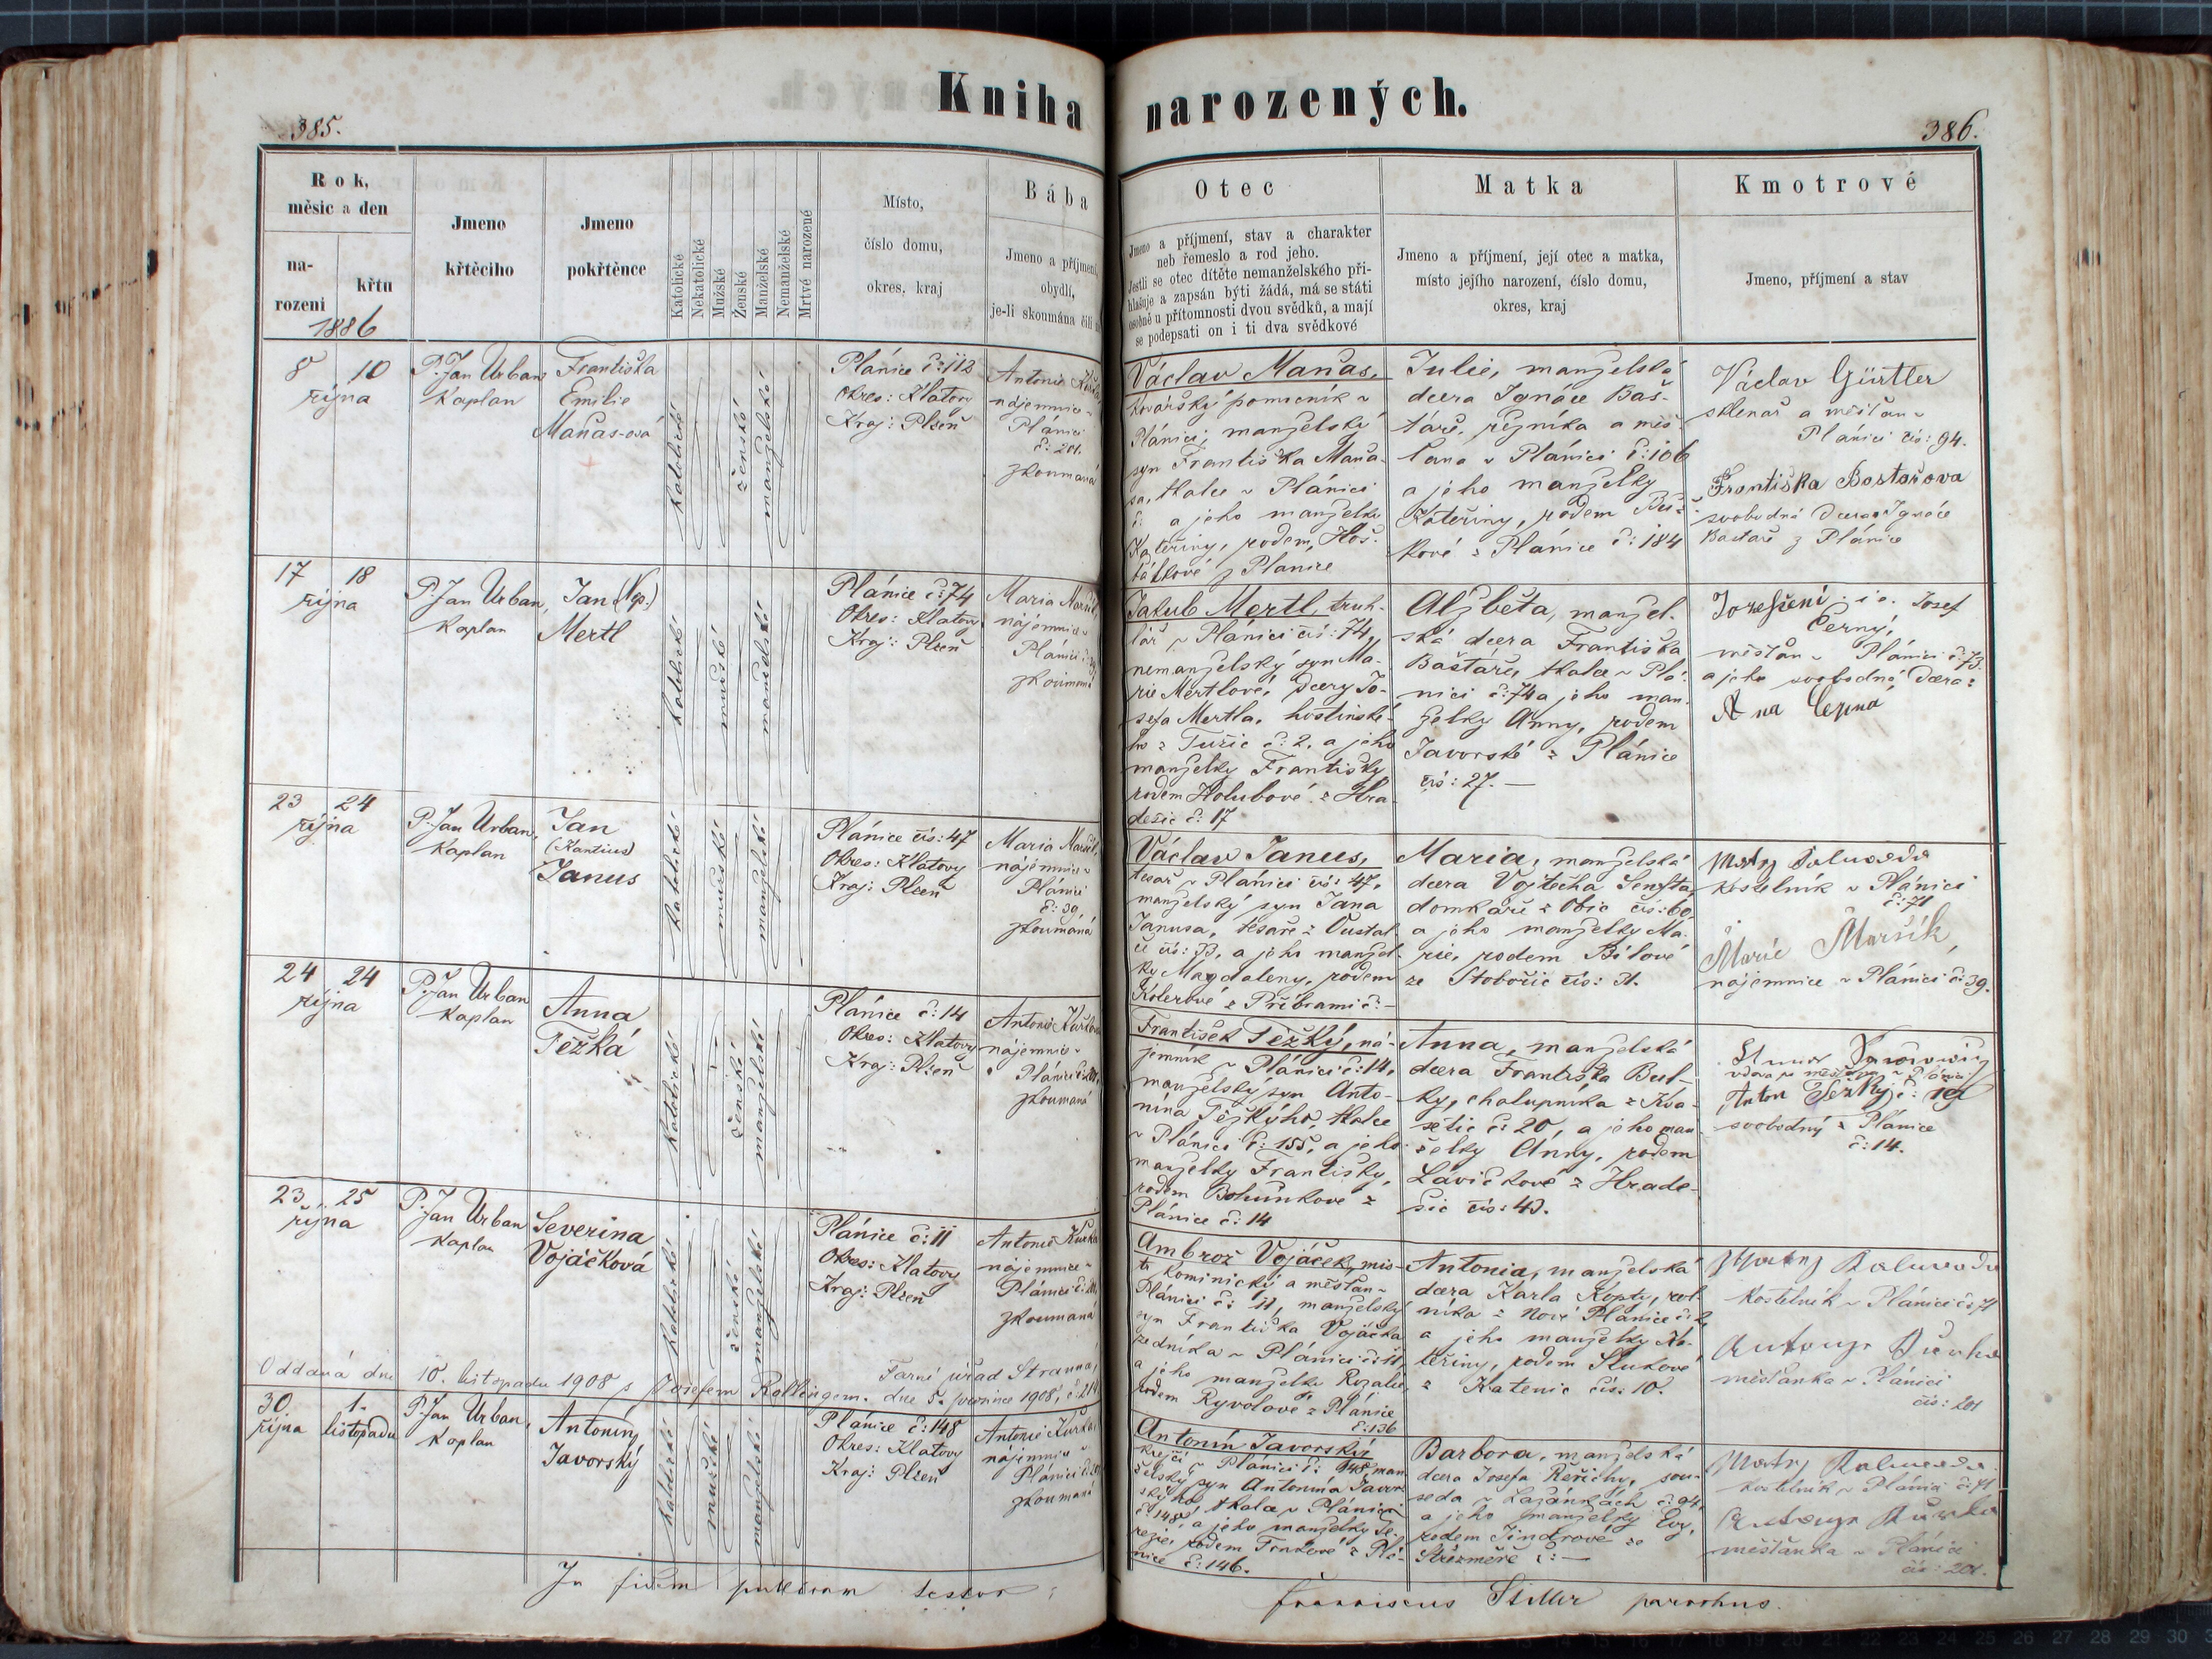 Kniha narozených.
385.
386.
Rok,
měsíc a den
na-
rození
křtu
1886
Jmeno
křtěcího
Jmeno
pokřtěnce
Katolické
Nekatolické
Mužské
Ženské
Manželské
Nemanželské
Mrtvé narozené
Místo,
číslo domu,
okres, kraj
Bába
Jmeno a příjmení,
obydlí,
je-li skoumána čili
Otec
Jmeno a příjmení, stav a charakter
neb řemeslo a rod jeho.
Jestli se otec dítěte nemanželského při-
hlašuje a zapsán býti žádá, má se státi
osobně u přítomnosti dvou svědků, a mají
se podepsati on i ti dva svědkové
Matka
Jmeno a příjmení, její otec a matka,
místo jejího narození, číslo domu,
okres, kraj
Kmotrové
Jmeno, příjmení a stav
8 10
října
P. Jan Urban
Kaplan
Františka
Emilie
Maňas-ová
katolické
ženské
manželské
Plánice č: 112
Okres: Klatovy
Kraj: Plzeň
Antonie
nájemnice v
Plánici
č: 201.
zkoumaná
Václav Maňas,
kovářský pomocník v
Plánici, manželský
syn Františka Maňa-
sa, tkalce v Plánici
č: a jeho manželky
Kateřiny, rodem Hoš-
ťálkové z Plánice
Julie, manželská
dcera Ignáce Baš-
táře, řezníka a měš-
ťana v Plánici č: 106
a jeho manželky
Kateřiny, rodem
kové z Plánice č: 184
Václav Gürtler
sklenař a měšťan v
Plánici čís: 94.
Františka Bastařova
svobodná dcera Ignáce
Baštaře z Plánice
17 18
října
P. Jan Urban,
Kaplan
Jan (Nep.)
Mertl
katolické
mužské
manželské
Plánice č: 74
Okres: Klatovy
Kraj: Plzeň
Maria Maršík,
nájemnice v
Plánici
zkoumaná
Jakub Mertl, truh-
lář v Plánici čís: 74,
nemanželský syn Ma-
rie Mertlové, dcery Jo-
sefa Mertla, hostinské-
ho z Tužic č: 2. a jeho
manželky Františky,
rodem Holubové z Hra-
dešic č: 17
Alžběta, manžel-
ská dcera Františka
Baštáře, tkalce v Plá-
nici č: 74 a jeho man-
želky Anny, rodem
Javorské z Plánice
čís: 27. —
Josef
Černý,
měšťan v Plánici č: 73.
a jeho svobodná dcera:
Anna Černá
23 24
října
P. Jan Urban,
Kaplan
Jan
(Kantius)
Janus
katolické
mužské
manželské
Plánice čís: 47
Okres: Klatovy
Kraj: Plzeň
Maria Maršík,
nájemnice v
Plánici
č: 39,
zkoumaná
Václav Janus,
tesař v Plánici čís: 47,
manželský syn Jana
Janusa, tesaře z
čís: 73, a jeho manžel-
ky Magdaleny, rodem
z Příbrami č: —
Maria, manželská
dcera Vojtěcha
domkáře z Obic čís: 60,
a jeho manželky Ma-
rie, rodem Bílové
ze Stobořic čís: 31.
kostelník v Plánici
č: 71
Marie Maršík,
nájemnice v Plánici č: 39.
24 24
října
P. Jan Urban
Kaplan
Anna
Těžká
katolické
ženské
manželské
Plánice č: 14
Okres: Klatovy
Kraj: Plzeň
Antonie
nájemnice v
Plánici
zkoumaná
František Těžký, ná-
jemník v Plánici č: 14,
manželský syn Anto-
nína Těžkýho, tkalce
v Plánici č: 155, a jeho
manželky Františky,
rodem Bohunkové z
Plánice č: 14
Anna, manželská
dcera Františka Bul-
ky, chalupníka z Kva-
šetic č: 20, a jeho man-
želky Anny, rodem
Lavičkové z Hrade-
šic čís: 43.
Anton Težký
svobodný z Plánice
č: 14.
23 25
října
P. Jan Urban
Kaplan
Severina
Vojáčková
katolické
ženské
manželské
Plánice č: 11
Okres: Klatovy
Kraj: Plzeň
Antonie
nájemnice v
Plánici
zkoumaná
Oddaná dne 10. listopadu 1908 s Josefem Rollingem. Farní úřad Stranná, dne 5. prosince 1908,
Ambrož Vojáček, mis-
tr kominický a měšťan v
Plánici č: 11, manželský
syn Františka Vojáčka
zedníka v Plánici č: 11,
a jeho manželky Rozalie,
rodem Ryvolové z Plánice
č: 136
Antonia, manželská
dcera Karla Kopty, rol-
níka z Nové Plánice č: 2
a jeho manželky Ka-
teřiny, rodem Slukové
z Katenic čís: 10.
kostelník v Plánici č: 71
měšťanka v Plánici
čís: 201
30. 1.
října listopadu
P. Jan Urban,
Kaplan
Antonín
Javorský
katolické
mužské
manželské
Plánice č: 148
Okres: Klatovy
Kraj: Plzeň
Antonie
nájemnice v
Plánici
zkoumaná
Antonín Javorský
krejčí v Plánici č: 148, man-
želský syn Antonína Javor-
ského, tkalce v Plánici
č: 148, a jeho manželky Te-
rezie, rodem z Plá-
nice č: 146.
Barbora, manželská
dcera Josefa Řeřichy, sou-
seda v Lažánkách č: 94,
a jeho manželky Evy,
rodem Jindrové ze
Střezměře č: —
kostelník v Plánici č: 71
měšťanka v Plánici
čís: 201.
In fidem
franciscus Stiller parochus.